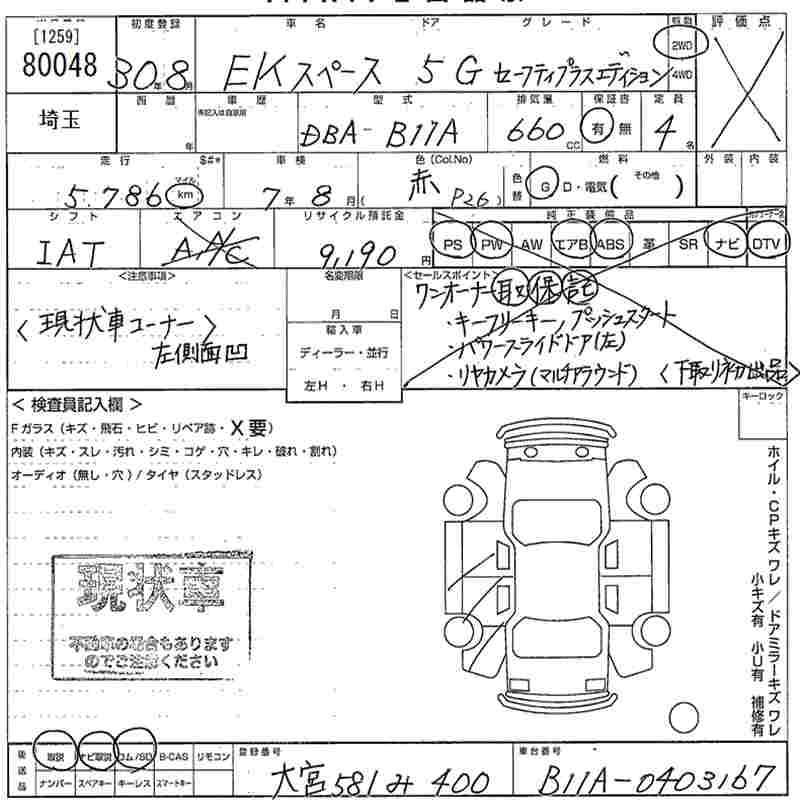 [1259]
80048
初度登録 車名 ドア グレード 駆動 評価点
30年8月 EKスペース 5 G セーフティプラスエディション 2WD 4WD
埼玉
西暦 車歴 型式 排気量 保証書 定員
年 DBA-B11A 660cc 有 無 4名
走行 $#* 車検 色(Col.No) 燃料 外装 内装
5,786 マイル km 7年8月( 赤 P26) 色替 G・D・電気( その他 )
シフト エアコン リサイクル預託金 純正装備品
IAT A/C 9,190円 PS PW AW エアB ABS 革 SR ナビ DTV
<注意事項> 名変期限 <セールスポイント>
〈現状車コーナー〉
左側面凹
月 日
輸入車
ディーラー・並行
左H ・ 右H
ワンオーナー 取 保 記
・キーフリーキー, プッシュスタート
・パワースライドドア(左)
・リヤカメラ(マルチアラウンド) 〈下取り初出品〉
キーロック
＜ 検査員記入欄 ＞
Fガラス（キズ・飛石・ヒビ・リペア跡・X要）
内装（キズ・スレ・汚れ・シミ・コゲ・穴・キレ・破れ・割れ）
オーディオ（無し・穴）/ タイヤ（スタッドレス）
現状車
不動車の場合もあります
のでご注意ください
ホイル・CPキズ ワレ ／ ドアミラーキズ ワレ
小キズ有 小U有 補修有
後送品 取説 ナビ取説 ロム/SD B-CAS リモコン
ナンバー スペアキー キーレス スマートキー
登録番号 大宮 581 み 400
車台番号 B11A-0403167